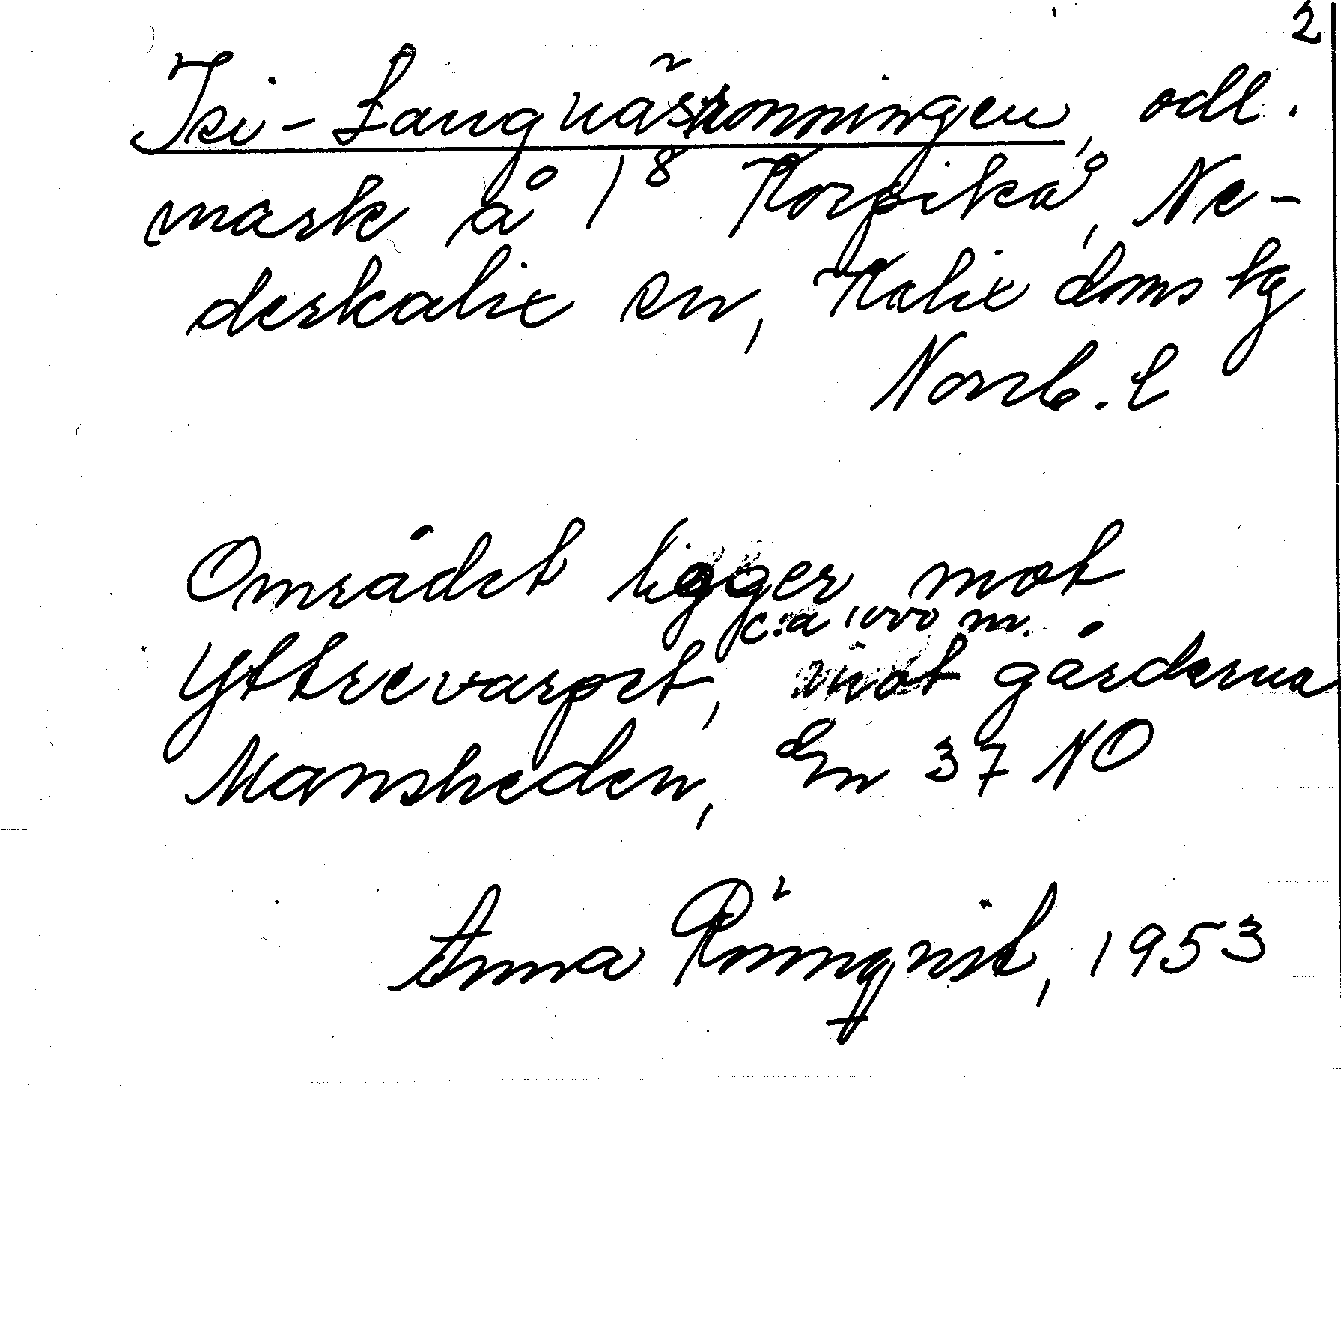 2
Isi-Langnäsrönningen, odl.
mark å 1⁸ Korpikå, Ne-
derkalix sn, Kalix doms tg
Norrb. l
Området ligger mot
c:a 1000 m.
Yttrevarpet, mot gårderna
Mansheden, En 37 NO
Anna Rönnqvist, 1953